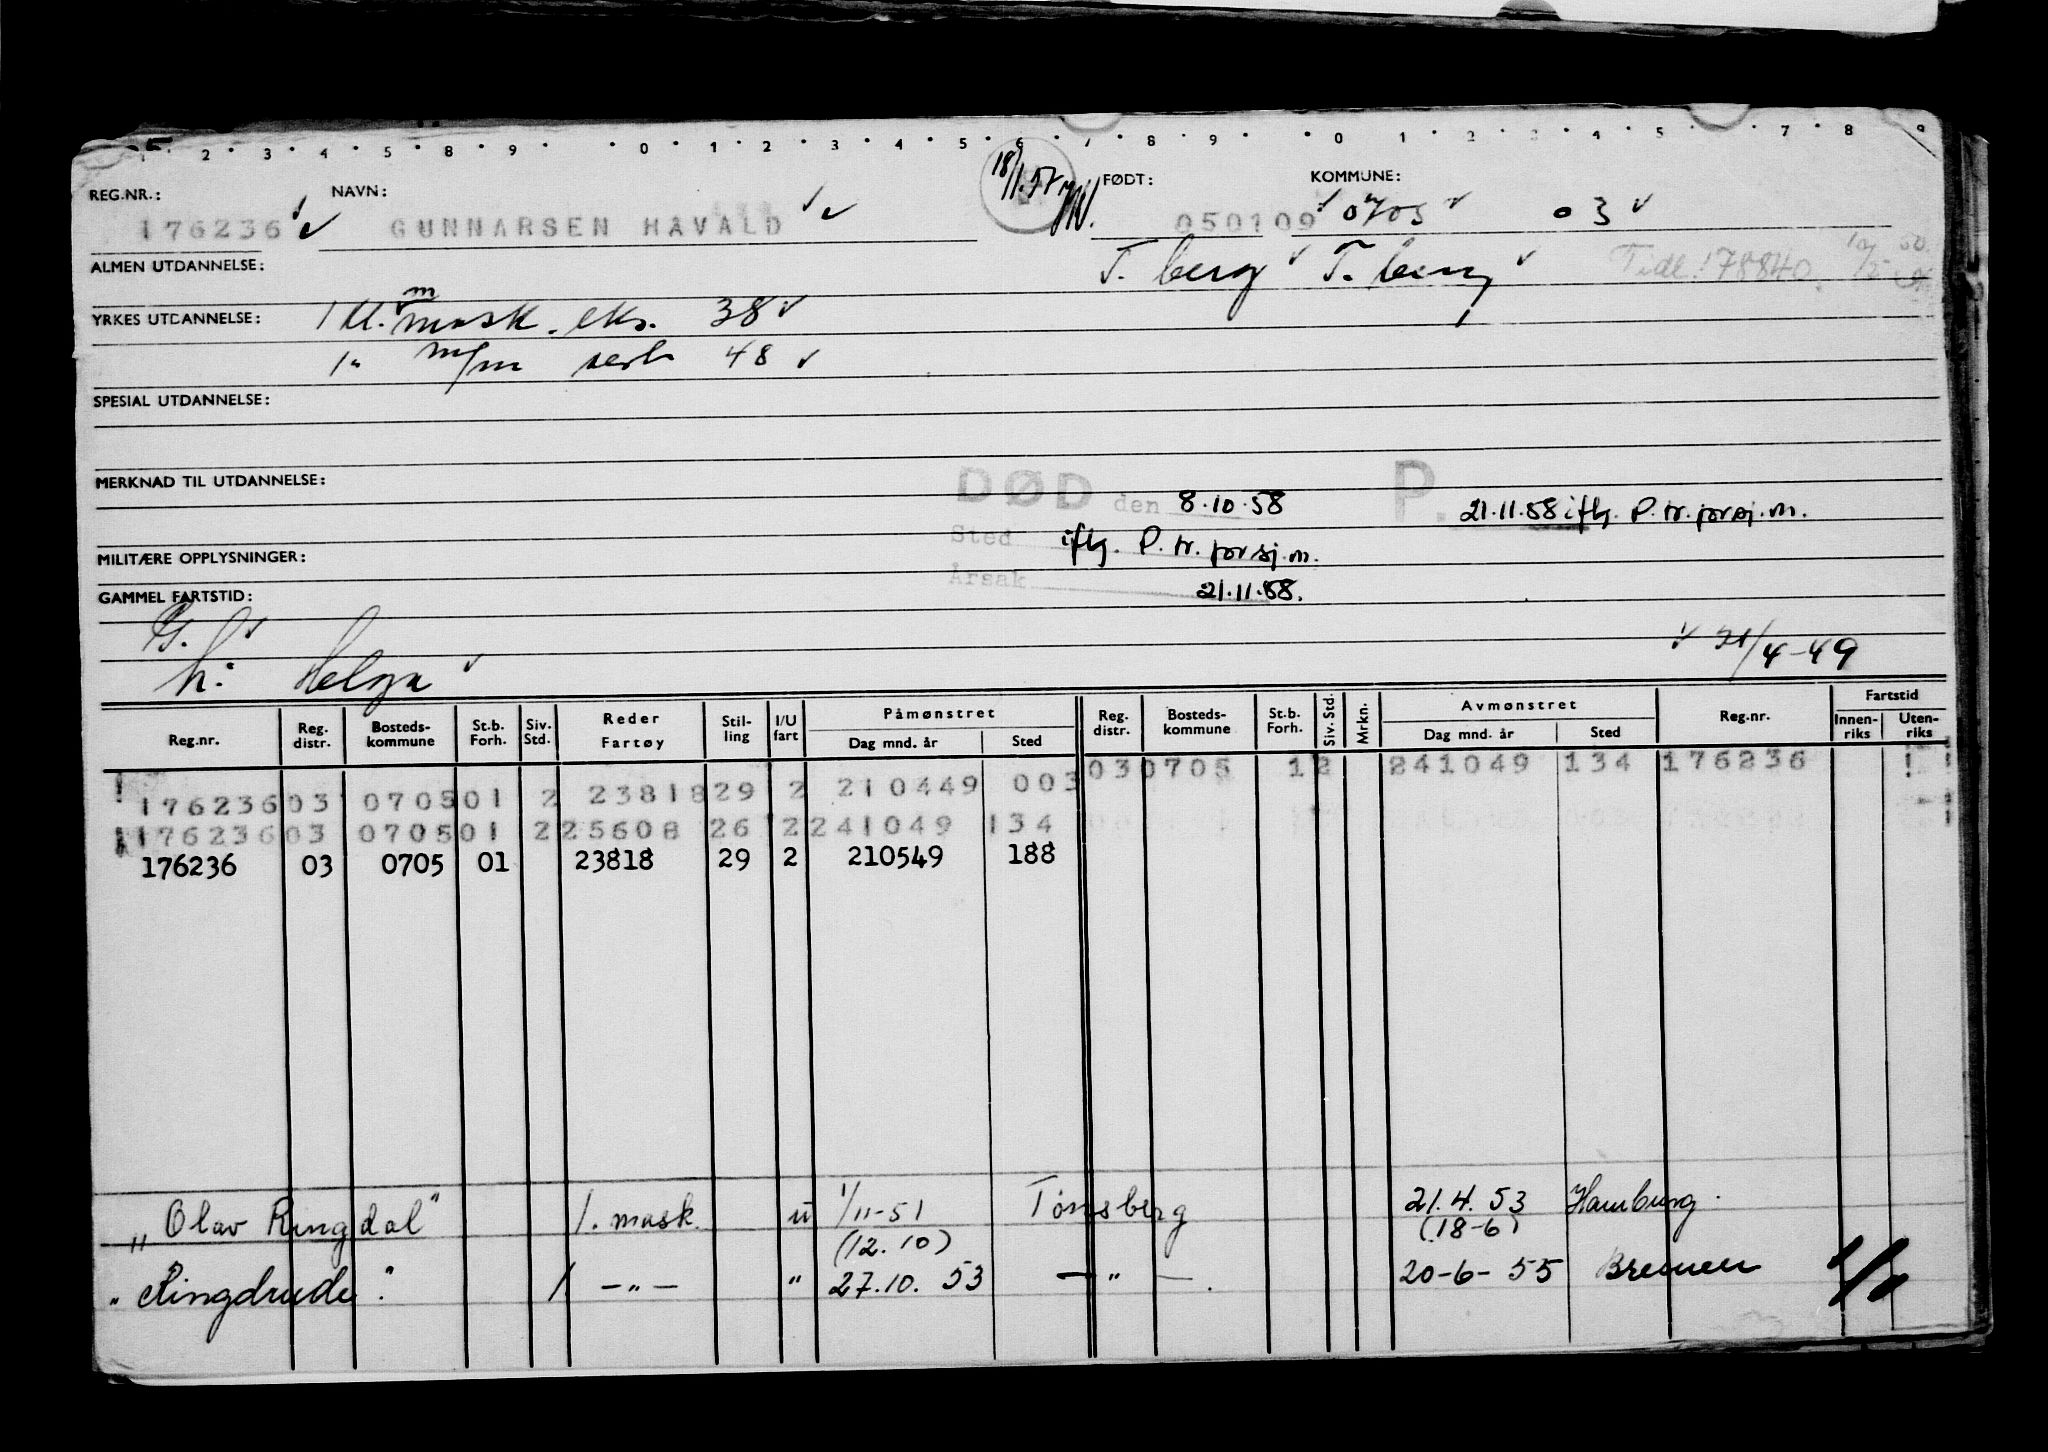 1 2 3 4 5 8 9 0 1 2 3 4 5 6 7 8 9 0 1 2 3 4 5 7 8 9
REG.NR.: NAVN: 18/1.57 FØDT: KOMMUNE:
176236 GUNNARSEN HAVALD 050109 0705 03
ALMEN UTDANNELSE: T. berg T. berg Tidl. 178840
YRKES UTDANNELSE: 1 kl. m mask. eks. 38
1" m/m sert 48
SPESIAL UTDANNELSE:
MERKNAD TIL UTDANNELSE:
DØD den 8.10.58 P. 21.11.58 iflg. P. tr. for sj.m.
Sted iflg. P. tr. for sj.m.
MILITÆRE OPPLYSNINGER:
Årsak 21.11.58.
GAMMEL FARTSTID:
h: Helga 21/4-49
Reg.nr. Reg. distr. Bosteds-kommune St.b. Forh. Siv. Std. Reder Fartøy Stil-ling I/U fart Påmønstret Dag mnd. år Sted Reg. distr. Bosteds-kommune St.b. Forh. Siv. Std. Mrkn. Avmønstret Dag mnd. år Sted Reg.nr. Fartstid Innen-riks Uten-riks
176236 03 0705 01 2 23818 29 2 210449 003 03 0705 12 241049 134 176236
176236 03 0705 01 2 25608 26 2 241049 134
176236 03 0705 01 23818 29 2 210549 188
"Olav Ringdal" 1. mask. u 1/11-51 Tønsberg 21.4.53 Hamburg.
(12.10) (18-6)
"Ringdrude". 1 -"- " 27.10.53 -"-. 20-6-55 Bremen